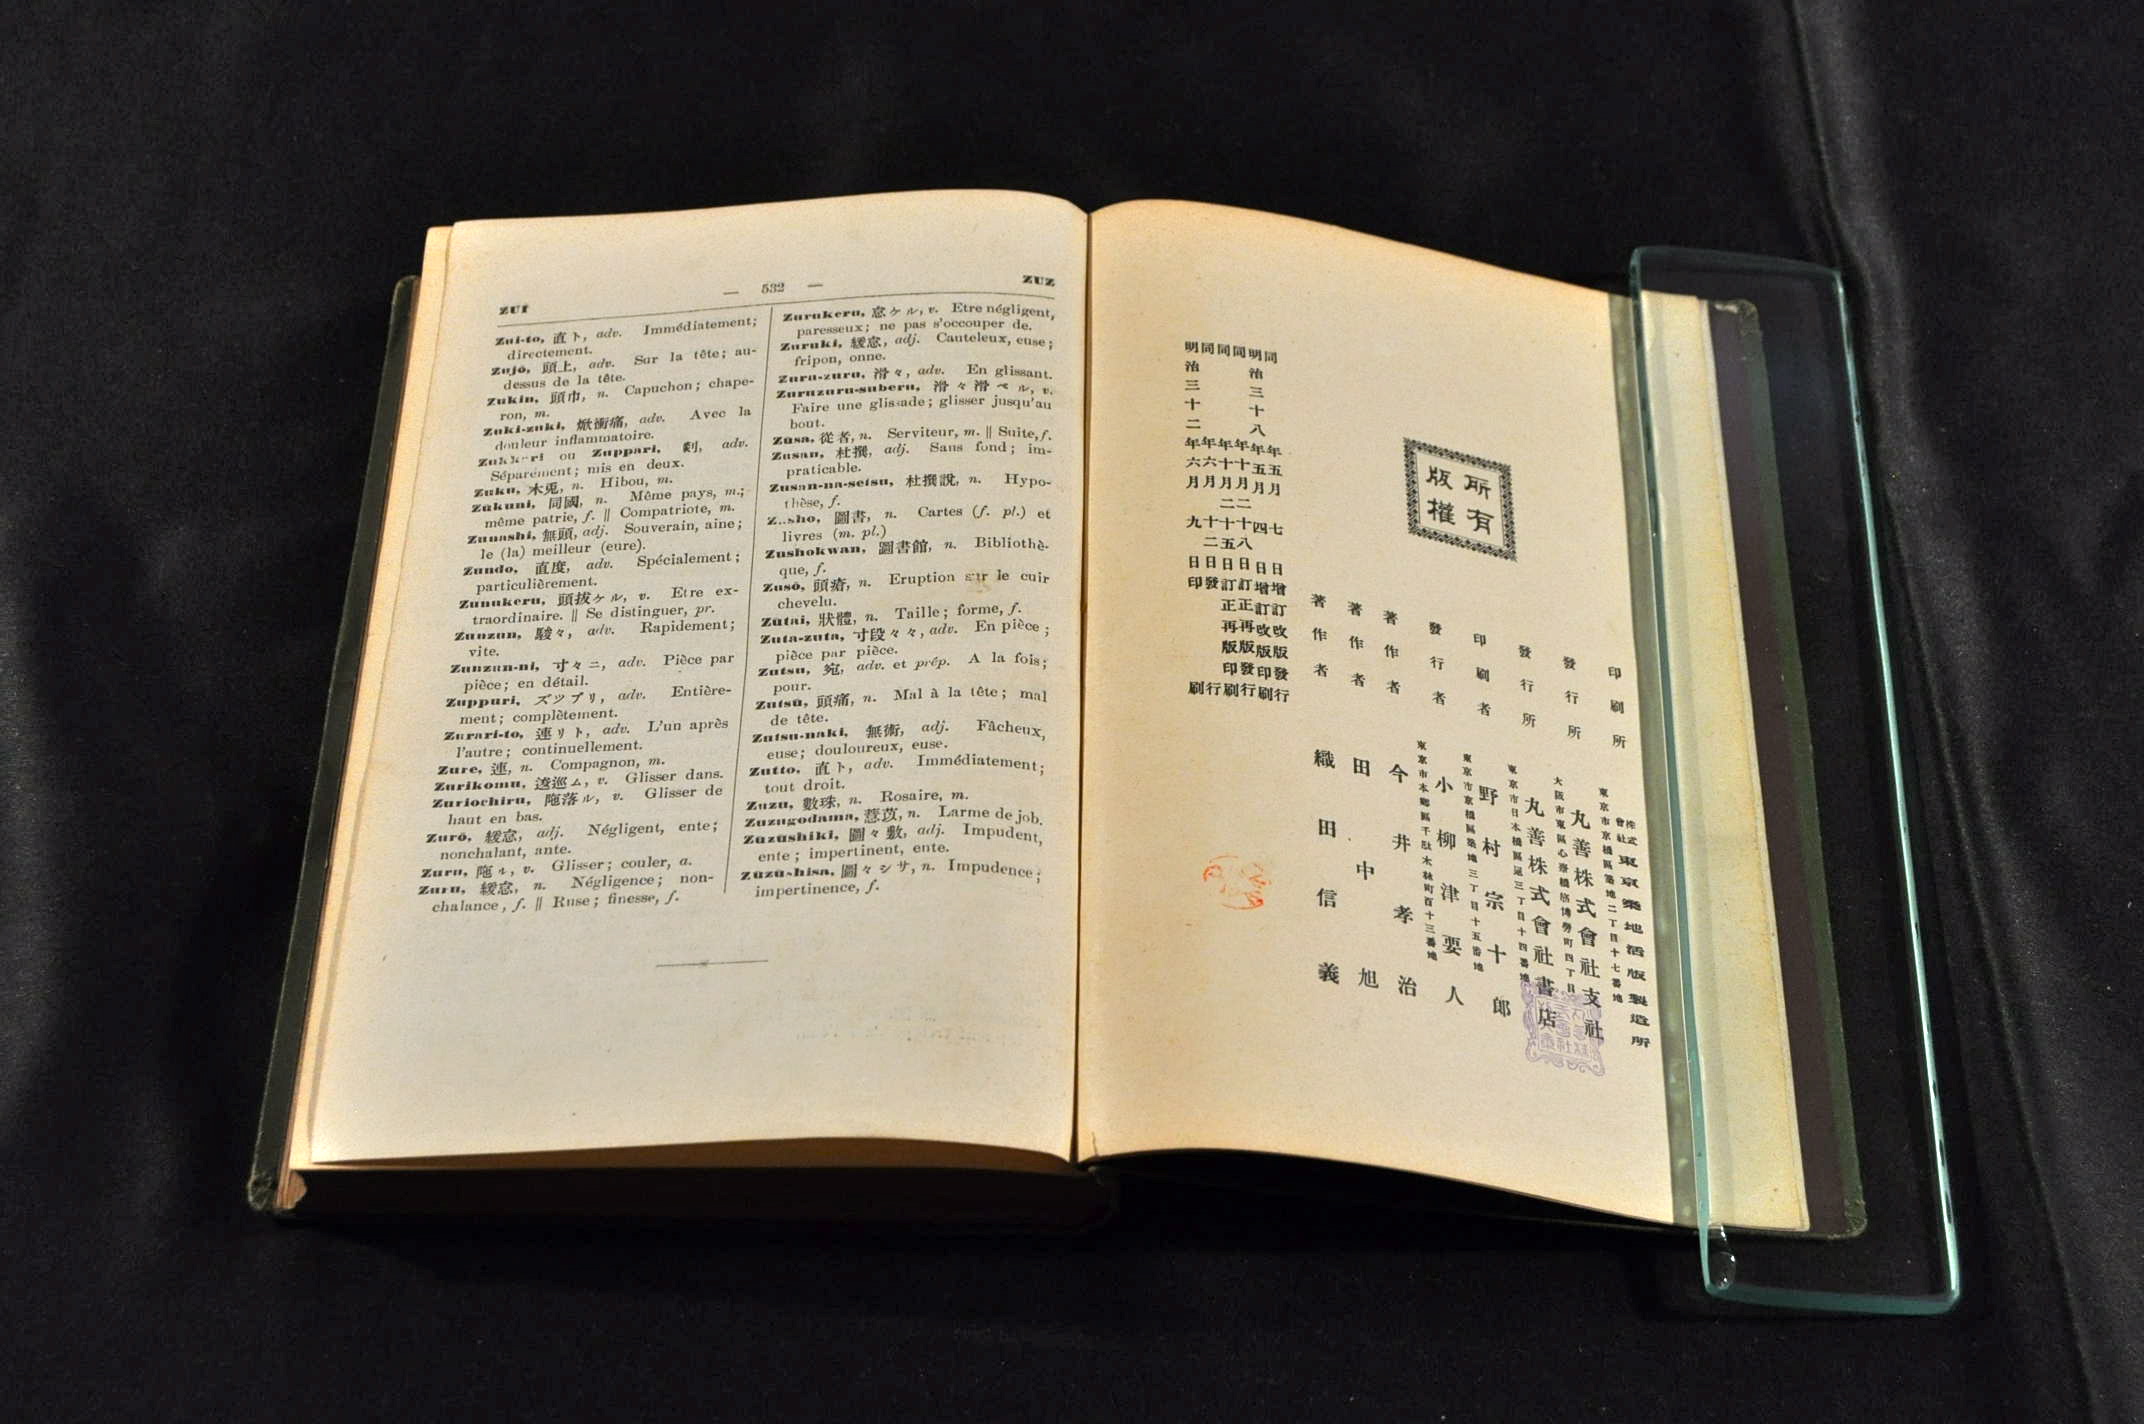 ZUI
— 532 —
ZUZ
Zui-to, 直ト, adv. Immédiatement;
directement.
Zujō, 頭上, adv. Sur la tête; au-
dessus de la tête.
Zukin, 頭巾, n. Capuchon; chape-
ron, m.
Zuki-zuki, 焮衝痛, adv. Avec la
douleur inflammatoire.
Zukkeri ou Zuppari, 剗, adv.
Séparément; mis en deux.
Zuku, 木兎, n. Hibou, m.
Zukuni, 同國, n. Même pays, m.;
même patrie, f. ‖ Compatriote, m.
Zunashi, 無頭, adj. Souverain, aine;
le (la) meilleur (eure).
Zundo, 直度, adv. Spécialement;
particulièrement.
Zunukeru, 頭拔ケル, v. Etre ex-
traordinaire. ‖ Se distinguer, pr.
Zunzun, 駿々, adv. Rapidement;
vite.
Zunzun-ni, 寸々ニ, adv. Pièce par
pièce; en détail.
Zuppuri, ズツプリ, adv. Entière-
ment; complètement.
Zurari-to, 連リト, adv. L'un après
l'autre; continuellement.
Zure, 連, n. Compagnon, m.
Zurikomu, 逡巡ム, v. Glisser dans.
Zuriochiru, 陁落ル, v. Glisser de
haut en bas.
Zurō, 緩怠, adj. Négligent, ente;
nonchalant, ante.
Zuru, 陁ル, v. Glisser; couler, a.
Zuru, 緩怠, n. Négligence; non-
chalance, f. ‖ Ruse; finesse, f.
Zurukeru, 怠ケル, v. Etre négligent,
paresseux; ne pas s'occouper de.
Zuruki, 緩怠, adj. Cauteleux, euse;
fripon, onne.
Zuru-zuru, 滑々, adv. En glissant.
Zuruzuru-suberu, 滑々滑ベル, v.
Faire une glissade; glisser jusqu'au
bout.
Zusa, 從者, n. Serviteur, m. ‖ Suite, f.
Zusan, 杜撰, adj. Sans fond; im-
praticable.
Zusan-na-setsu, 杜撰說, n. Hypo-
thèse, f.
Z..sho, 圖書, n. Cartes (f. pl.) et
livres (m. pl.)
Zushokwan, 圖書館, n. Bibliothè-
que, f.
Zusō, 頭瘡, n. Eruption sur le cuir
chevelu.
Zutai, 狀體, n. Taille; forme, f.
Zuta-zuta, 寸段々々, adv. En pièce;
pièce par pièce.
Zutsu, 宛, adv. et prép. A la fois;
pour.
Zutsū, 頭痛, n. Mal à la tête; mal
de tête.
Zutsu-naki, 無術, adj. Fâcheux,
euse; douloureux, euse.
Zutto, 直ト, adv. Immédiatement;
tout droit.
Zuzu, 數珠, n. Rosaire, m.
Zuzugodama, 薏苡, n. Larme de job.
Zūzūshiki, 圖々敷, adj. Impudent,
ente; impertinent, ente.
Zūzūshisa, 圖々シサ, n. Impudence;
impertinence, f.
所有
版權
同年五月七日增訂改版發行
明治三十八年五月四日增訂改版印刷
同年十月二十八日訂正再版發行
同年十月二十五日訂正再版印刷
同年六月十二日發行
明治三十二年六月九日印刷
著作者 織田信義
著作者 田中旭
著作者 今井孝治
東京市本鄉區千駄木林町百十三番地
發行者 小柳津要人
東京市京橋區築地三丁目十五番地
印刷者 野村宗十郎
東京市日本橋區通三丁目十四番地
發行所 丸善株式會社書店
大阪市東區心齋橋筋博勞町四丁目
發行所 丸善株式會社支社
東京市京橋區築地二丁目十七番地
印刷所 株式會社東京築地活版製造所